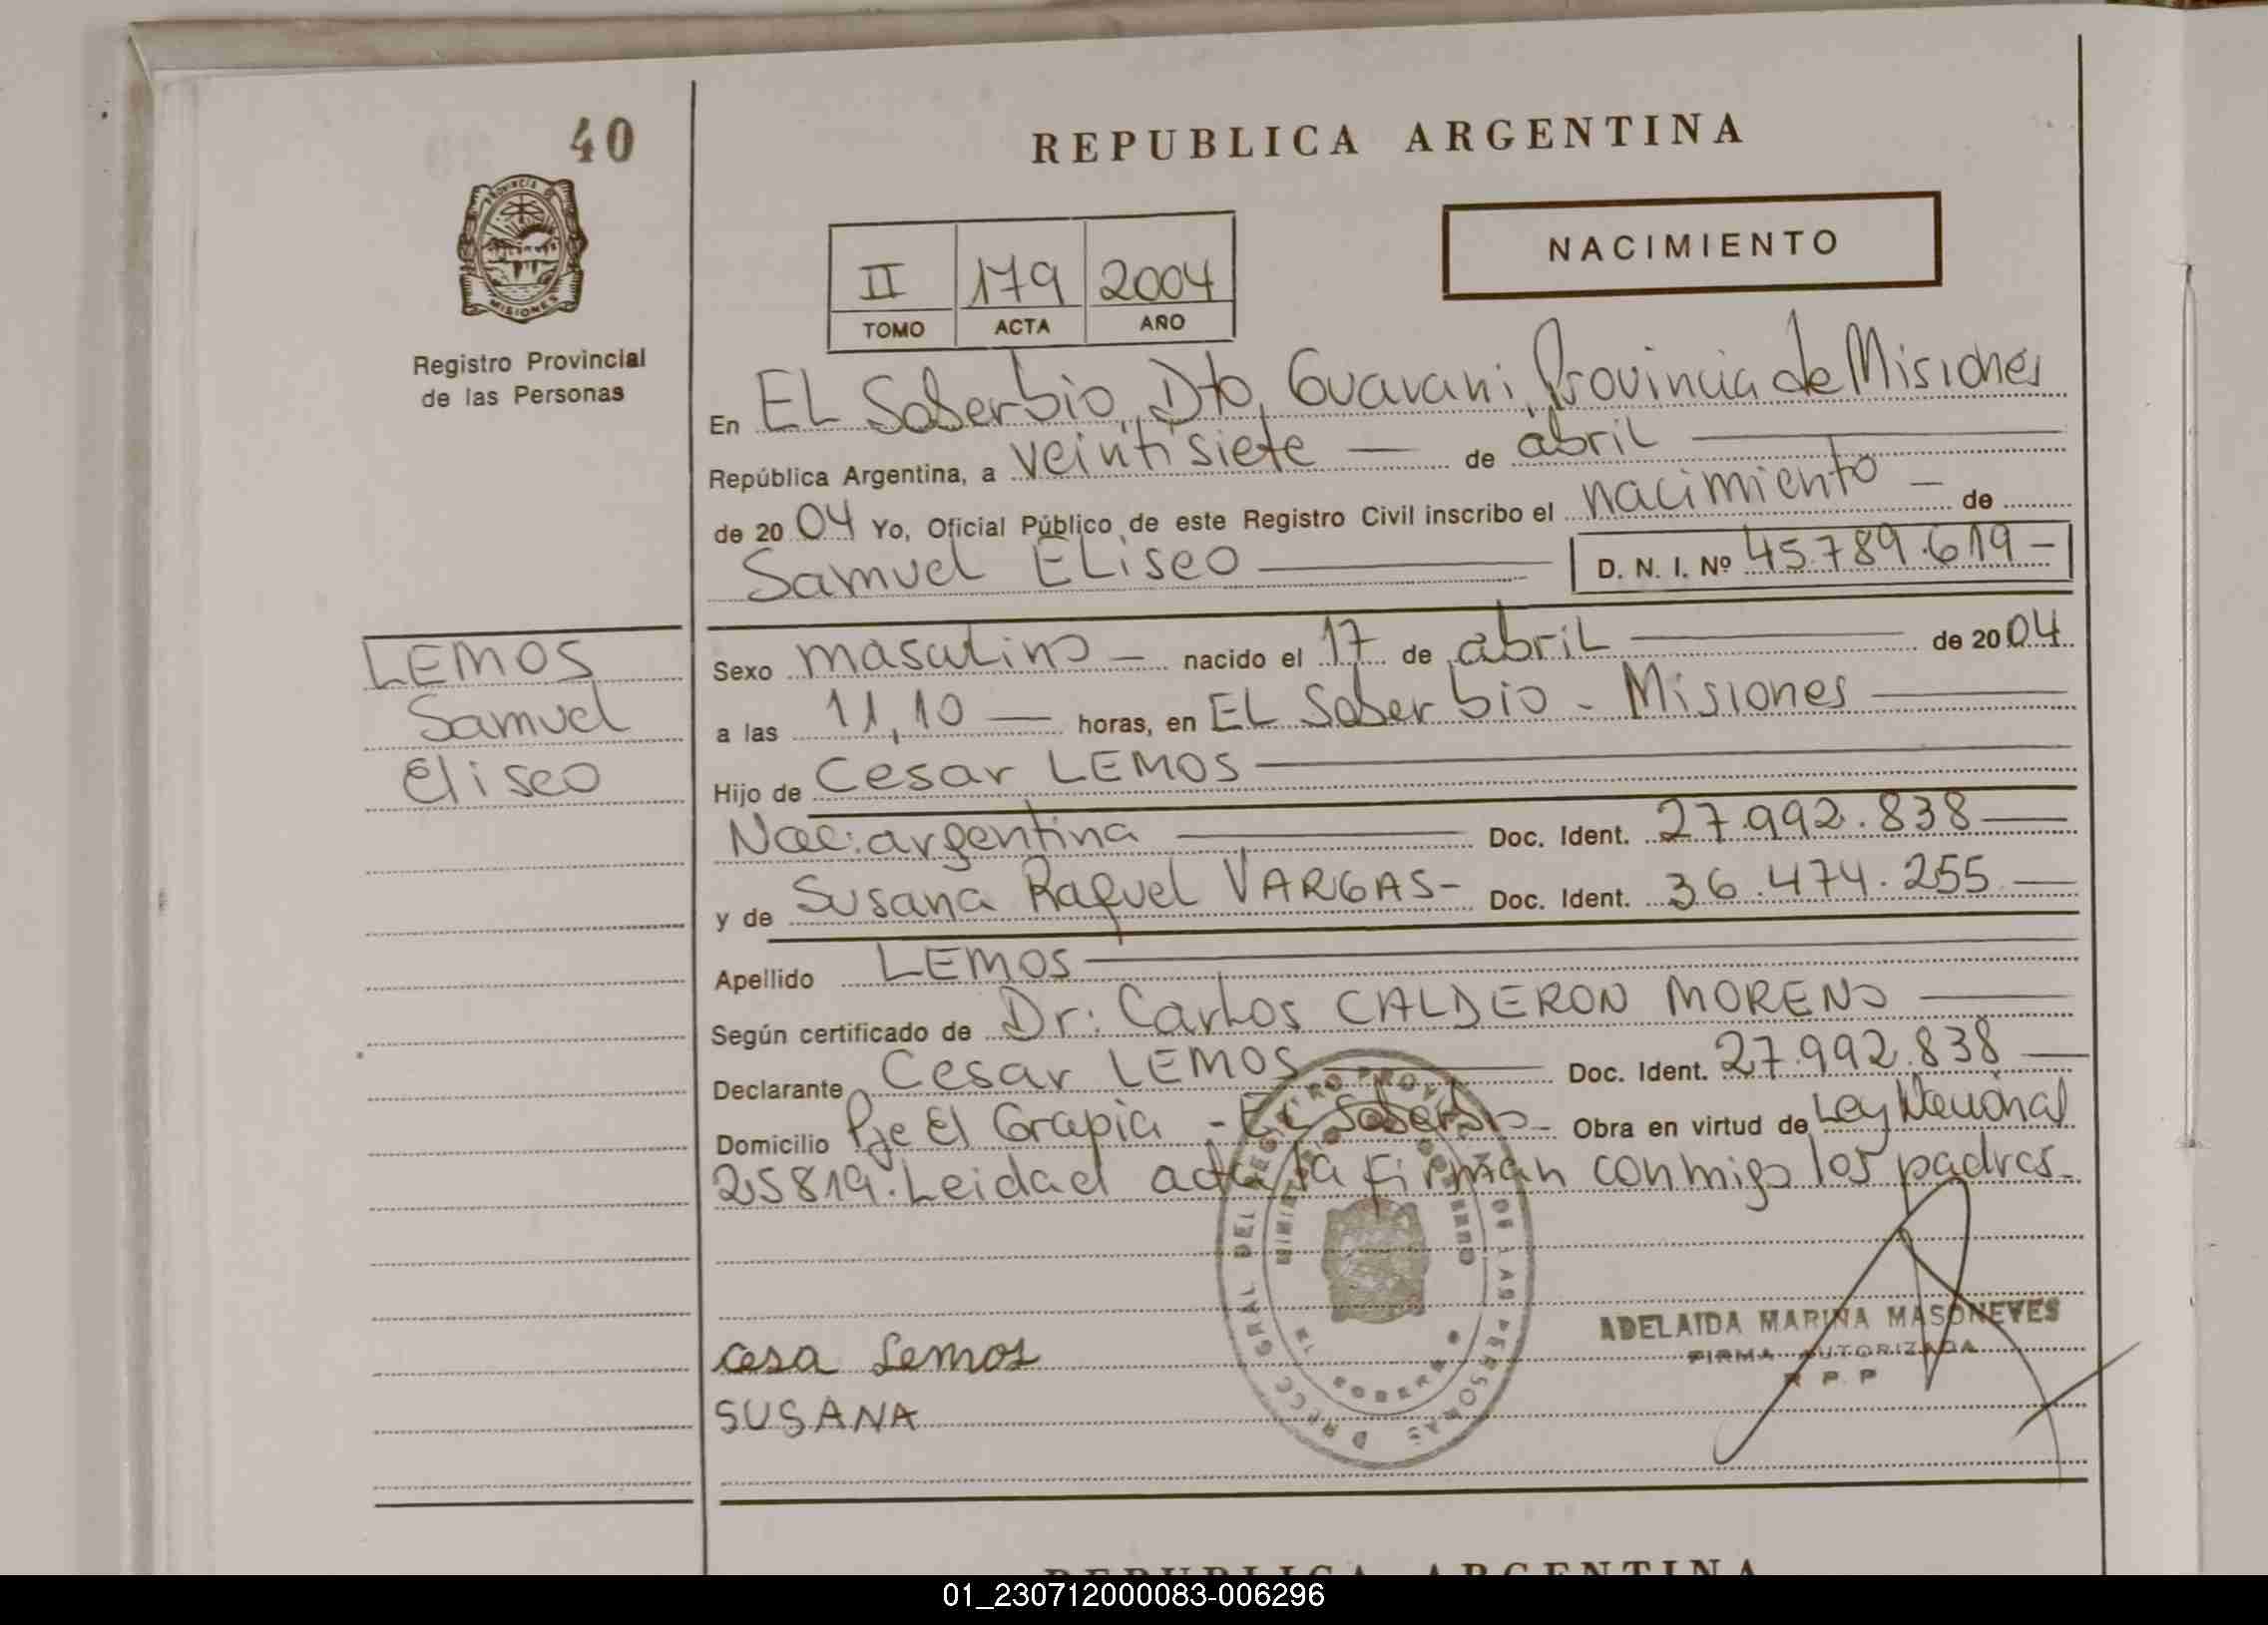 40
PROVINCIA DE
MISIONES
Registro Provincial
de las Personas
REPUBLICA ARGENTINA
NACIMIENTO
II 179 2004
TOMO ACTA AÑO
En EL Soberbio, Dto, Guarani, Provincia de Misiones
República Argentina, a veintisiete — de abril —
de 20 04 Yo, Oficial Público de este Registro Civil inscribo el nacimiento — de
Samuel Eliseo — D. N. I. Nº 45.789.619 —
LEMOS
Samuel
Eliseo
Sexo masculino — nacido el 17 de abril — de 20 04
a las 11,10 — horas, en EL Soberbio - Misiones —
Hijo de Cesar LEMOS —
Nac: argentina — Doc. Ident. 27.992.838 —
y de Susana Raquel VARGAS - Doc. Ident. 36.474.255 —
Apellido LEMOS —
Según certificado de Dr: Carlos CALDERON MORENO —
Declarante Cesar LEMOS — Doc. Ident. 27.992.838 —
Domicilio Pje El Grapia - El Soberbio - Obra en virtud de Ley Nacional
25819. Leidael acta la firman conmigo los padres.
DIRECC GRAL DEL REGISTRO PROV. DE LAS PERSONAS
EL SOBERBIO
ADELAIDA MARINA MASONEVES
FIRMA AUTORIZADA
R P P
cesa Lemos
SUSANA
REPUBLICA ARGENTINA
01_230712000083-006296